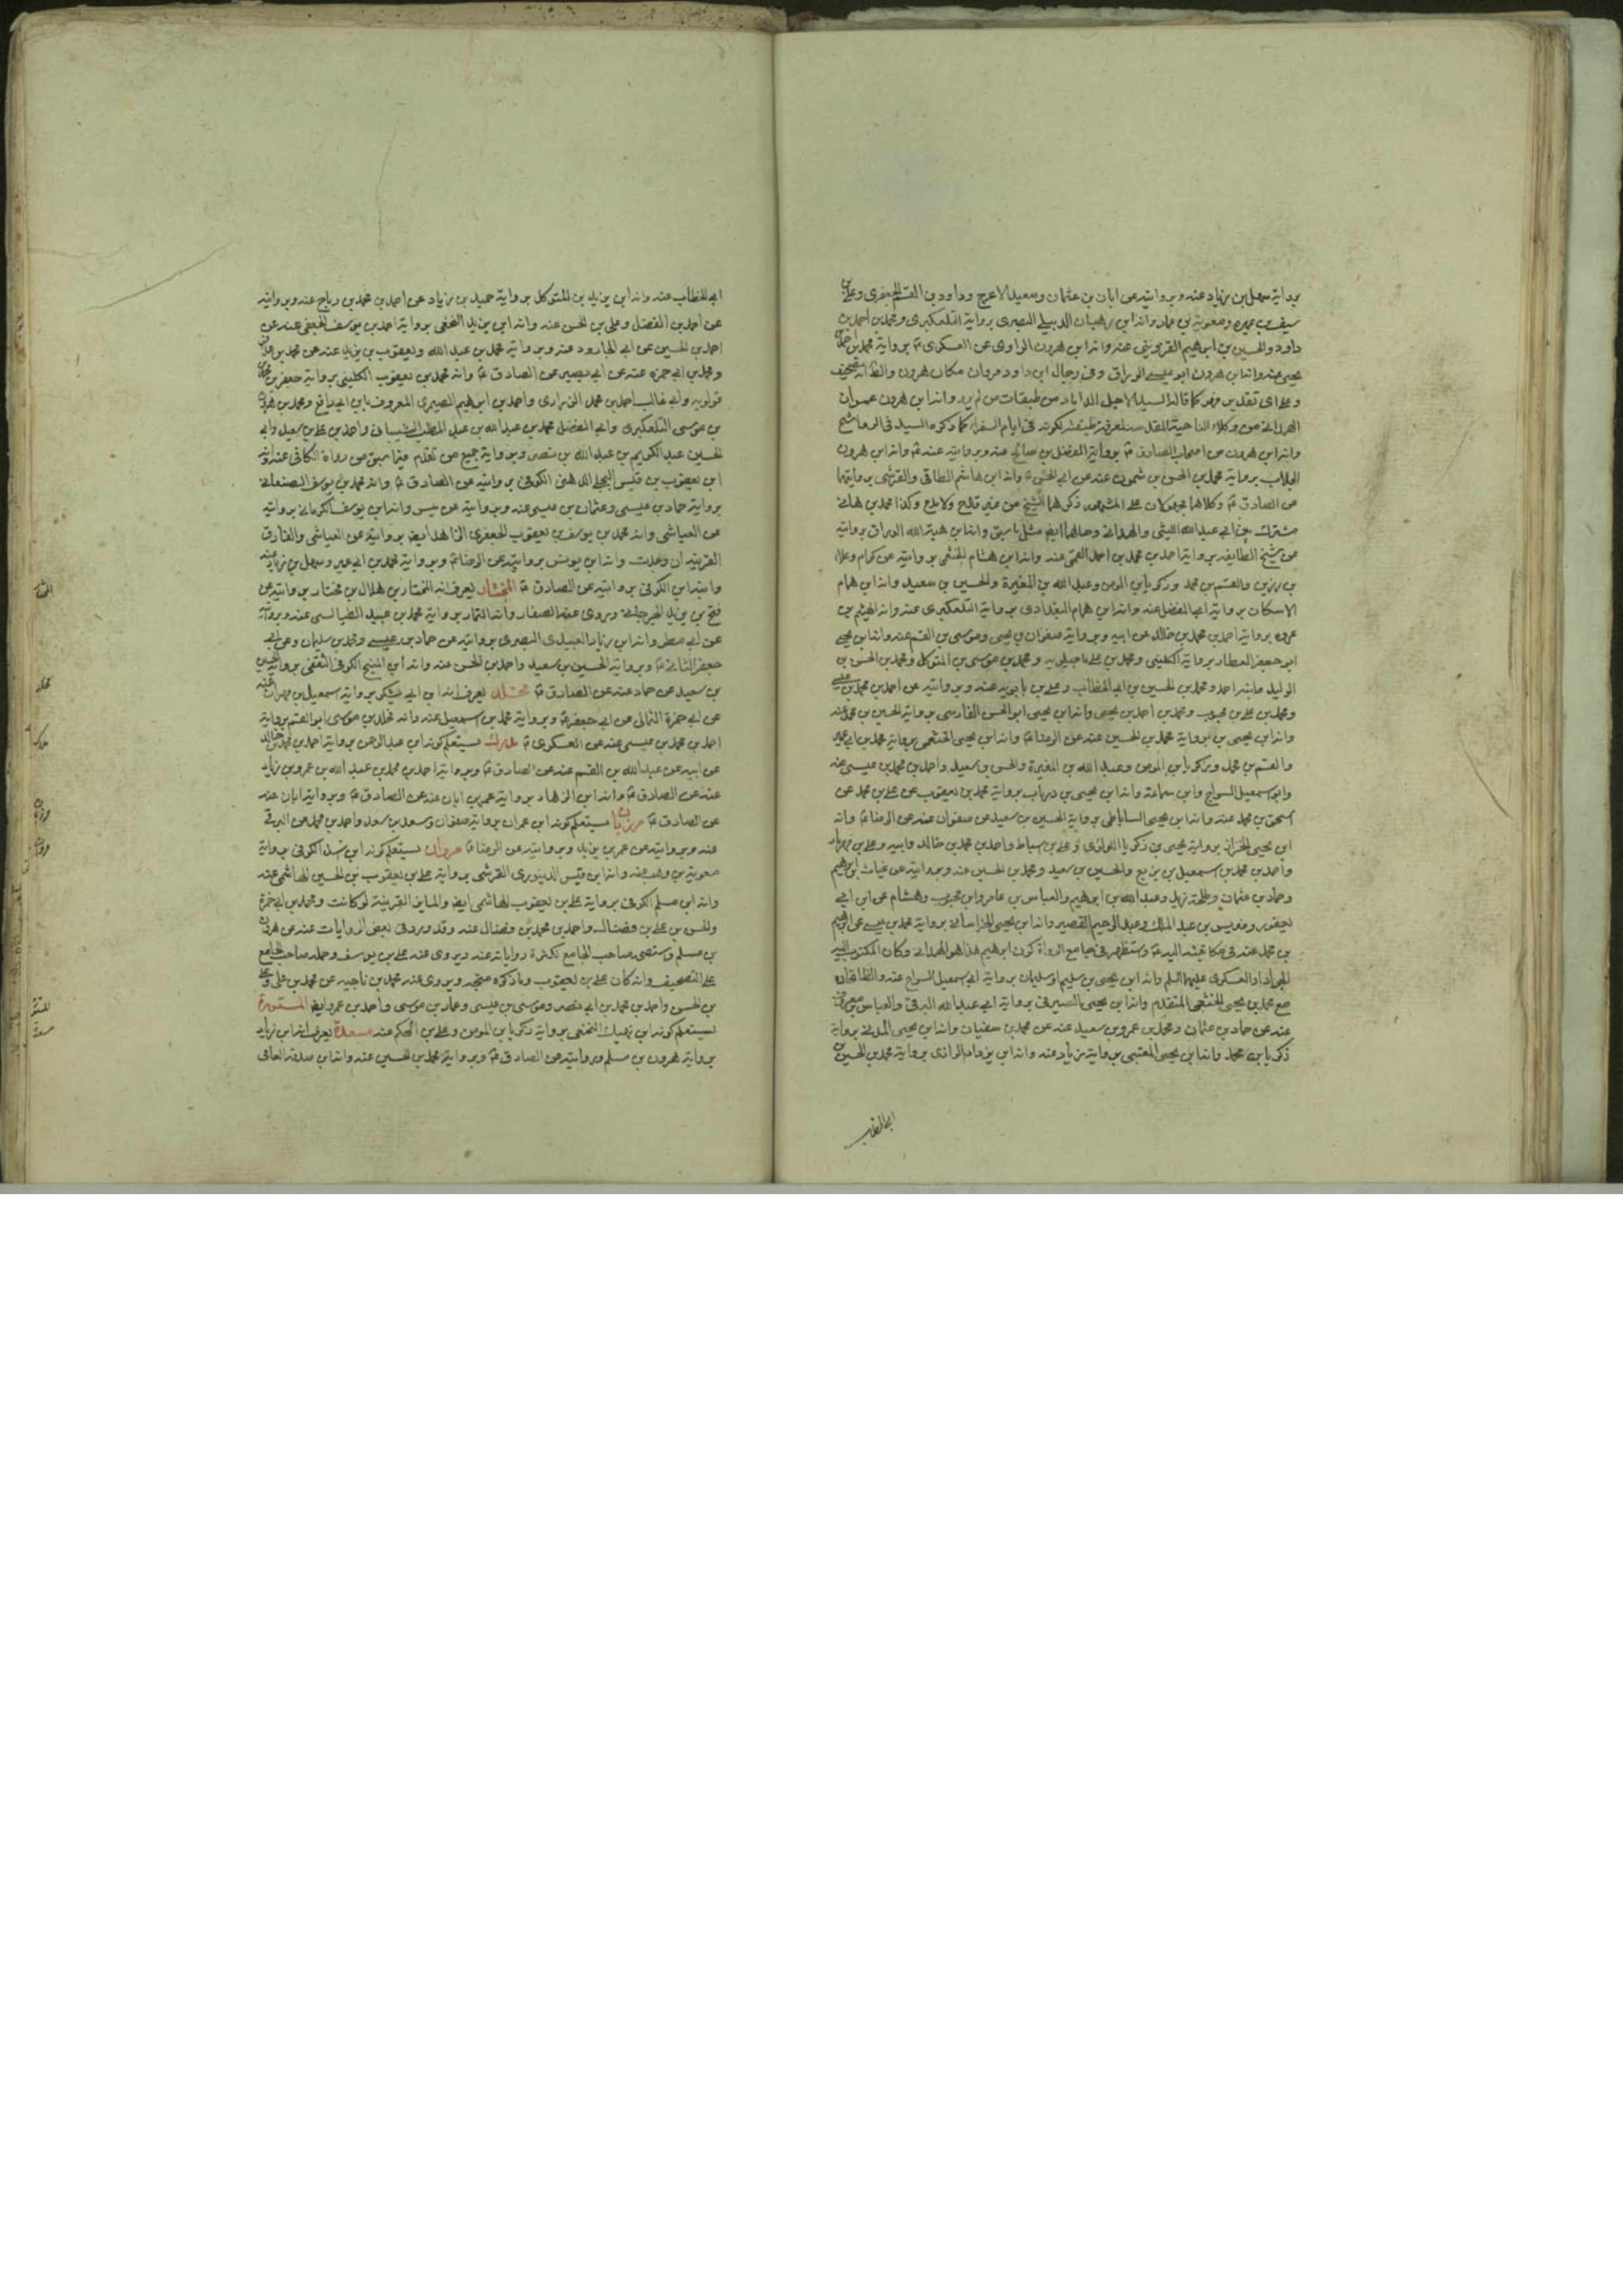 برواية سهل بن زياد عنه وبروايته عن ابان بن عثمان وسعيد الاعرج وداود بن القسم الجعفرى وعلى بن
سيف بن عميره ومعوية بن عمار وانه ابن وهبان الدبيلى البصرى برواية التلعكبرى ومحمد بن احمد بن
داود والحسين بن ابراهيم القزوينى عنه وانه ابن هرون الراوى عن العسكرى ع برواية محمد بن
يحيى عنه وانه ابن هرون ابو عيسى الوراق وفى رجال ابن داود مروان مكان هرون والظ انه تصحيف
وعلى اى تقدير فهو كما قاله السيد الاجل الداماد من طبقات من لم يرو وانه ابن هرون عمران
الهمدانى من وكلاء الناحية المقدسة لكونه فى ايام السفراء كما ذكره السيد فى الرواشح
وانه ابن هرون من اصحاب الصادق ع برواية المفضل بن صالح عنه وبروايته عنه ع وانه ابن هرون
الجلاب برواية محمد بن الحسن بن شمون عنه عن ابى الحسن ع وانه ابن هاشم الطائى والقرشى بروايتهما
عن الصادق ع وكلاهما مجهولان على المشهور ذكرهما الشيخ من غير قدح ولا مدح وكذا محمد بن هانى
مشترك بين ابى عبد الله الليثى والهمدانى وحالهما ايضا مثل ما سبق وانه ابن هبة الله الوراق بروايته
عن شيخ الطايفة برواية احمد بن محمد بن احمد القمى عنه وانه ابن هشام الخثعمى بروايته عن كرام وعلاء
بن رزين والقسم بن محمد وزكريا بن المومن وعبد الله بن المغيرة والحسين بن سعيد وانه ابن همام
الاسكانى برواية ابى المفضل عنه وانه ابن همام البغدادى برواية التلعكبرى عنه وانه الهيثم بن
عروه برواية احمد بن محمد بن خالد عن ابيه وبرواية صفوان بن يحيى وموسى بن القسم عنه وانه ابن يحيى
ابو جعفر العطار برواية الكلينى ومحمد بن على ماجيلويه ومحمد بن موسى بن المتوكل ومحمد بن الحسن بن
الوليد وابنه احمد ومحمد بن الحسين بن ابى الخطاب وعلى بن بابويه عنه وبروايته عن احمد بن محمد بن عيسى
ومحمد بن على بن محبوب ومحمد بن احمد بن يحيى وانه ابن يحيى ابو الحسن الفارسى برواية الحسين بن محمد عنه
وانه ابن يحيى بن برواية محمد بن الحسين عنه عن الرضا ع وانه ابن يحيى الخثعمى برواية محمد بن ابى عمير
والقسم بن محمد وزكريا بن المومن وعبد الله بن المغيرة والحسن بن سعيد واحمد بن محمد بن عيسى عنه
وابو اسمعيل السراج وابن سماعة وانه ابن يحيى بن درياب برواية محمد بن يعقوب عن على بن محمد عن
اسحق بن محمد عنه وانه ابن يحيى الساباطى برواية الحسين بن سعيد عن صفوان عنه عن الرضا ع وانه
ابن يحيى الخزاز برواية يحيى بن زكريا اللؤلؤى وعلى بن اسباط واحمد بن محمد بن خالد وابيه وعلى بن مهزيار
واحمد بن محمد بن اسمعيل بن بزيع والحسين بن سعيد ومحمد بن الحسين عنه وبروايته عن غياث بن ابرهيم
وحماد بن عثمان وطلحة بن زيد وعبد الله بن ابرهيم والعباس بن عامر وابن محبوب وهشام عن ابن ابى
يعفور ومديس بن عبد الملك وعبد الرحيم القصير وانه ابن يحيى الخراسانى برواية محمد بن عيسى عن ابرهيم
بن محمد عنه فى مكاتبته اليه ع واستظهر فى جامع الرواة كون ابرهيم هذا هو الهمدانى وكان المكتوب اليه
الجواد او العسكرى عليهما السلم وانه ابن يحيى بن سليم او سليمان برواية ابى اسمعيل السراج عنه والظ اتحاده
مع محمد بن يحيى الخثعمى المتقدم وانه ابن يحيى الصيرفى برواية ابى عبد الله البرقى والعباس بن معروف
عنه عن حماد بن عثمان ومحمد بن عمرو بن سعيد عنه عن محمد بن سفيان وانه ابن يحيى المدنى برواية
زكريا بن محمد وانه ابن يحيى المعينى برواية بن زياد عنه وانه ابن يزداد الرازى برواية محمد بن الحسين بن
ابى الخطاب
ابى الخطاب عنه وانه ابن يزيد بن المتوكل برواية حميد بن زياد عن احمد بن محمد بن رباح عنه وبروايته
عن احمد بن الفضل وعلى بن الحسن عنه وانه ابن يزيد النخعى برواية احمد بن يوسف الجعفى عنه عن
احمد بن الحسين عن ابى الجارود عنه وبرواية محمد بن عبد الله ويعقوب بن يزيد عنه عن محمد بن
ومحمد بن ابى حمزه عنه عن ابى بصير عن الصادق ع وانه محمد بن يعقوب الكلينى برواية جعفر بن محمد بن
قولويه وابى غالب احمد بن محمد الزرارى واحمد بن ابرهيم الصيمرى المعروف بابن ابى رافع ومحمد بن هرون
بن موسى التلعكبرى وابى المفضل محمد بن عبد الله بن عبد المطلب الشيبانى واحمد بن على بن سعيد وابى
الحسين عبد الكريم بن عبد الله بن نصر وبرواية جميع من تقدم فيما سبق من رواة الكافى عنه وانه
ابن يعقوب بن قيس البجلى الدهنى الكوفى بروايته عن الصادق ع وانه محمد بن يوسف الصنعانى
برواية حماد بن عيسى وعثمان بن عيسى عنه وبروايته عن ميسر وانه ابن يوسف الكرمانى بروايته
عن العياشى وانه محمد بن يوسف بن يعقوب الجعفرى الزاهد ايضا بروايته عن العياشى والفارق
القرينة ان وجدت وانه ابن يونس بروايته عن الرضا ع وبرواية محمد بن ابى عمير وسهل بن زياد عنه
وانه ابن الكوفى بروايته عن الصادق ع المختار يعرف انه المختار بن هلال بن مختار بروايته عن
فتح بن يزيد الجرجانى وروى عنه الصفار وانه التمار برواية محمد بن عبيد الطيالسى عنه وبروايته
عن ابى مطر وانه ابن زياد العبيدى البصرى بروايته عن حماد بن عيسى ومحمد بن سليمان وعن ابى
جعفر الثانى ع وبرواية الحسين بن سعيد واحمد بن الحسن عنه وانه ابن المنيح الكوفى الثقفى برواية الحسين
بن سعيد عن حماد عنه عن الصادق ع مخلد يعرف انه ابن ابى شيكر برواية اسمعيل بن مهران عنه
عن ابى حمزة الثمالى عن ابى جعفر ع وبرواية محمد بن اسمعيل عنه وانه مخلد بن موسى ابو القسم برواية
احمد بن محمد بن عيسى عنه عن العسكرى ع مدرك يستعلم كونه ابن عبد الرحمن برواية احمد بن محمد بن خالد
عن ابيه عن عبد الله بن القسم عنه عن الصادق ع وبرواية احمد بن محمد بن عبد الله بن عمرو بن زياد
عنه عن الصادق ع وانه ابن الزهاد برواية عمر بن ابان عنه عن الصادق ع وبرواية ابان عنه
عن الصادق ع مرزبان يستعلم كونه ابن عمران برواية صفوان وسعد بن سعد واحمد بن محمد عن البرقى
عنه وبروايته عن عمر بن يزيد وبروايته عن الرضا ع مروان يستعلم كونه ابن الكوفى برواية
معوية بن وهب عنه وانه ابن قيس الدينورى القرشى برواية على بن يعقوب بن الحسين الهاشمى عنه
وانه ابن مسلم الكوفى برواية على بن يعقوب الهاشمى ايضا والمايز القرينة لو كانت ومحمد بن ابى حمزة
والحسن بن على بن فضال واحمد بن محمد بن فضال عنه وقد ورد فى بعض الروايات عنه عن هرون
بن مسلم واستصوب صاحب الجامع لكثرة رواياته عنه ويروى عنه على بن يوسف وحمله صاحب الجامع
على التصحيف وانه كان على بن يعقوب وما ذكره متجه ويروى عنه محمد بن ناجيه عن محمد بن على وعلى
بن الحسن واحمد بن محمد بن ابى نصر وموسى بن عيسى وعمار بن موسى واحمد بن عمرو ايضا المستورة
يستعلم كونه ابن نهيك النخعى برواية زكريا بن المومن وعلى بن الحكم عنه مسعدة يعرف انه ابن زياد
برواية هرون بن مسلم وبروايته عن الصادق ع وبرواية محمد بن الحسين عنه وانه ابن صدقه العامى
المختار
مخلد
مدرك
مرزبان
مروان
المستورة
مسعدة